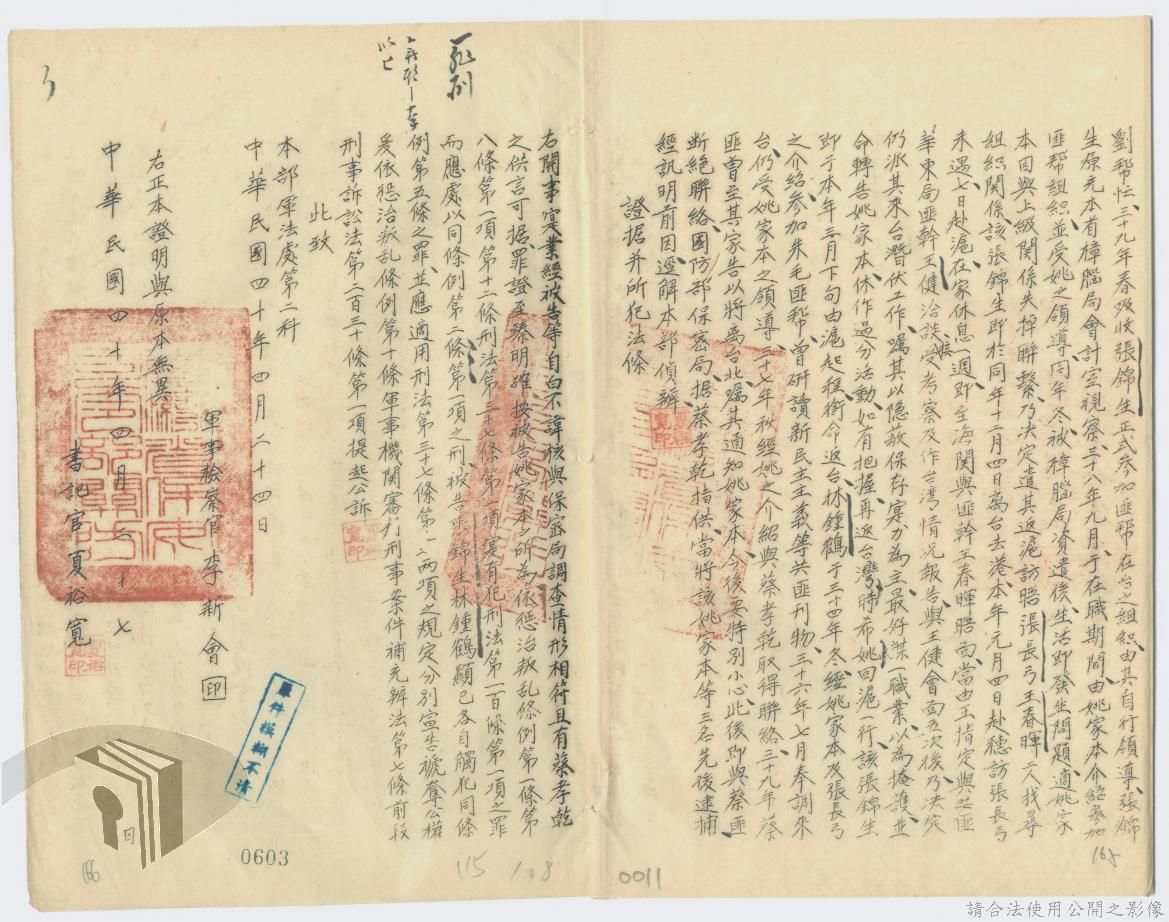 劉幫忙、三十九年春吸收張錦生正式參加匪幫在台之組織、由其自行領導、張錦
生原元本省樟腦局會計室視察三十八年九月、于在職期間、由姚家本介紹參加
匪幫組織、並受姚之領導、同年冬、被樟腦局資遣後、生活即發生問題、適姚家
本因與上級關係失掉聯繫、乃決定遣其返滬訪晤張長弓王春暉二人找尋
組織關係、該張錦生即於同年十二月四日离台去港、本年元月四日赴穗訪張長弓
未遇、七日赴滬、在家休息一週、即至海関與匪幹王春暉晤面、當由王指定與共匪
華東局匪幹王健洽談、接受考察及作台湾情况報告、與王健會面五次後、乃決定
仍派其來台潛伏工作、囑其以隐蔽保存实力為主、最好某一職業、以為掩護、並
命轉告姚家本、休作過分活動、如有把握、再返台灣、時希姚回滬一行、該張錦生
即于本年三月下旬由滬起程銜命返台、林鍾鶴于三十四年冬、經姚家本及張長弓
之介紹、參加朱毛匪幫曾研讀新民主主義等共匪刊物、三十六年七月奉調來
台、仍受姚家本之領導、三十七年秋經姚之介紹與蔡孝乾取得聯絡、三十九年蔡
匪曾至其家告以將离台北、囑其通知姚家本、今後要特別小心、此後即與蔡匪
断絕聯絡、國防部保密局据蔡孝乾指供、當將該姚家本等三名先後逮捕
經訊明前因、遞解本部偵辦
證据并所犯法條
右開事实業經被告等自白不諱核與保密局調查情形相符且有蔡孝乾
之供言可据罪證至臻明確按被告姚家本之所為依惩治叛乱條例第一條第
八條第一項第十二條刑法第三十七條第一項是有犯刑法第一百條第一項之罪
而應處以同條例第二條第一項之刑、被告張錦生林鍾鶴顯已各自觸犯同條
例第五條之罪、並應適用刑法第三十七條第一二兩項之規定分別宣告褫奪公權
爰依惩治叛乱條例第十條軍事機関審判刑事案件補充辦法第七條前段
刑事訴訟法第二百三十條第一項提起公訴
此致
本部軍法處第二科
中華民國四十年四月二十四日
軍事檢察官李新會 印
右正本證明與原本無異
中華民國四十年四月二十七
書記官夏裕寬
死刑
原件模糊不清
0603
115
108
0011
168
166
請合法使用公開之影像